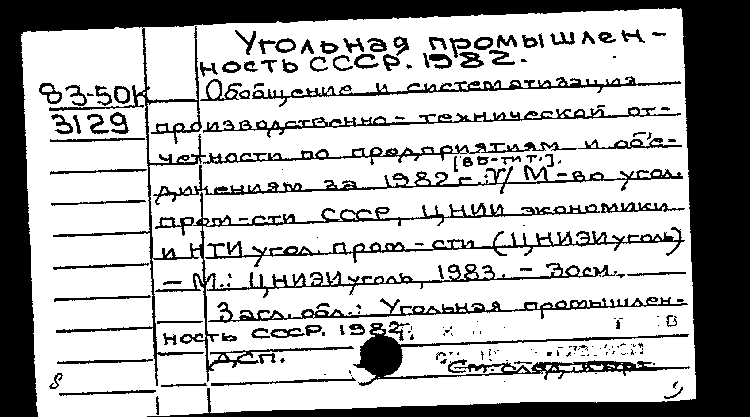 Угольная промышлен-
ность СССР. 1982.
83-50К Обобщение и систематизация
3129 производственно-технической от-
четности по предприятиям и объе-
[в 6-ти т.].
динениям за 1982 г.: / М-во угол.
пром-сти СССР, ЦНИИ экономики
и НТИ угол. пром-сти (ЦНИЭИуголь)
– М.: ЦНИЭИуголь, 1983. – 30см.
Загл. обл.: Угольная промышлен-
ность СССР. 1982
ДСП.
См. след. карт.
8